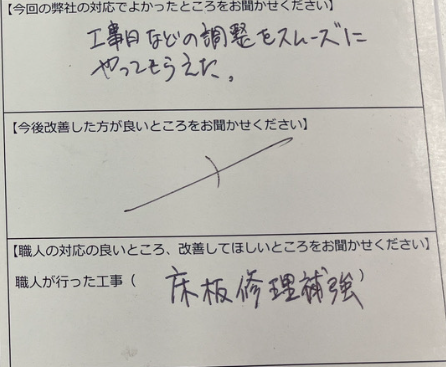 【今回の弊社の対応でよかったところをお聞かせください】
工事日などの調整をスムーズに
やってもらえた。
【今後改善した方が良いところをお聞かせください】
【職人の対応の良いところ、改善してほしいところをお聞かせください】
職人が行った工事（ 床板修理補強）